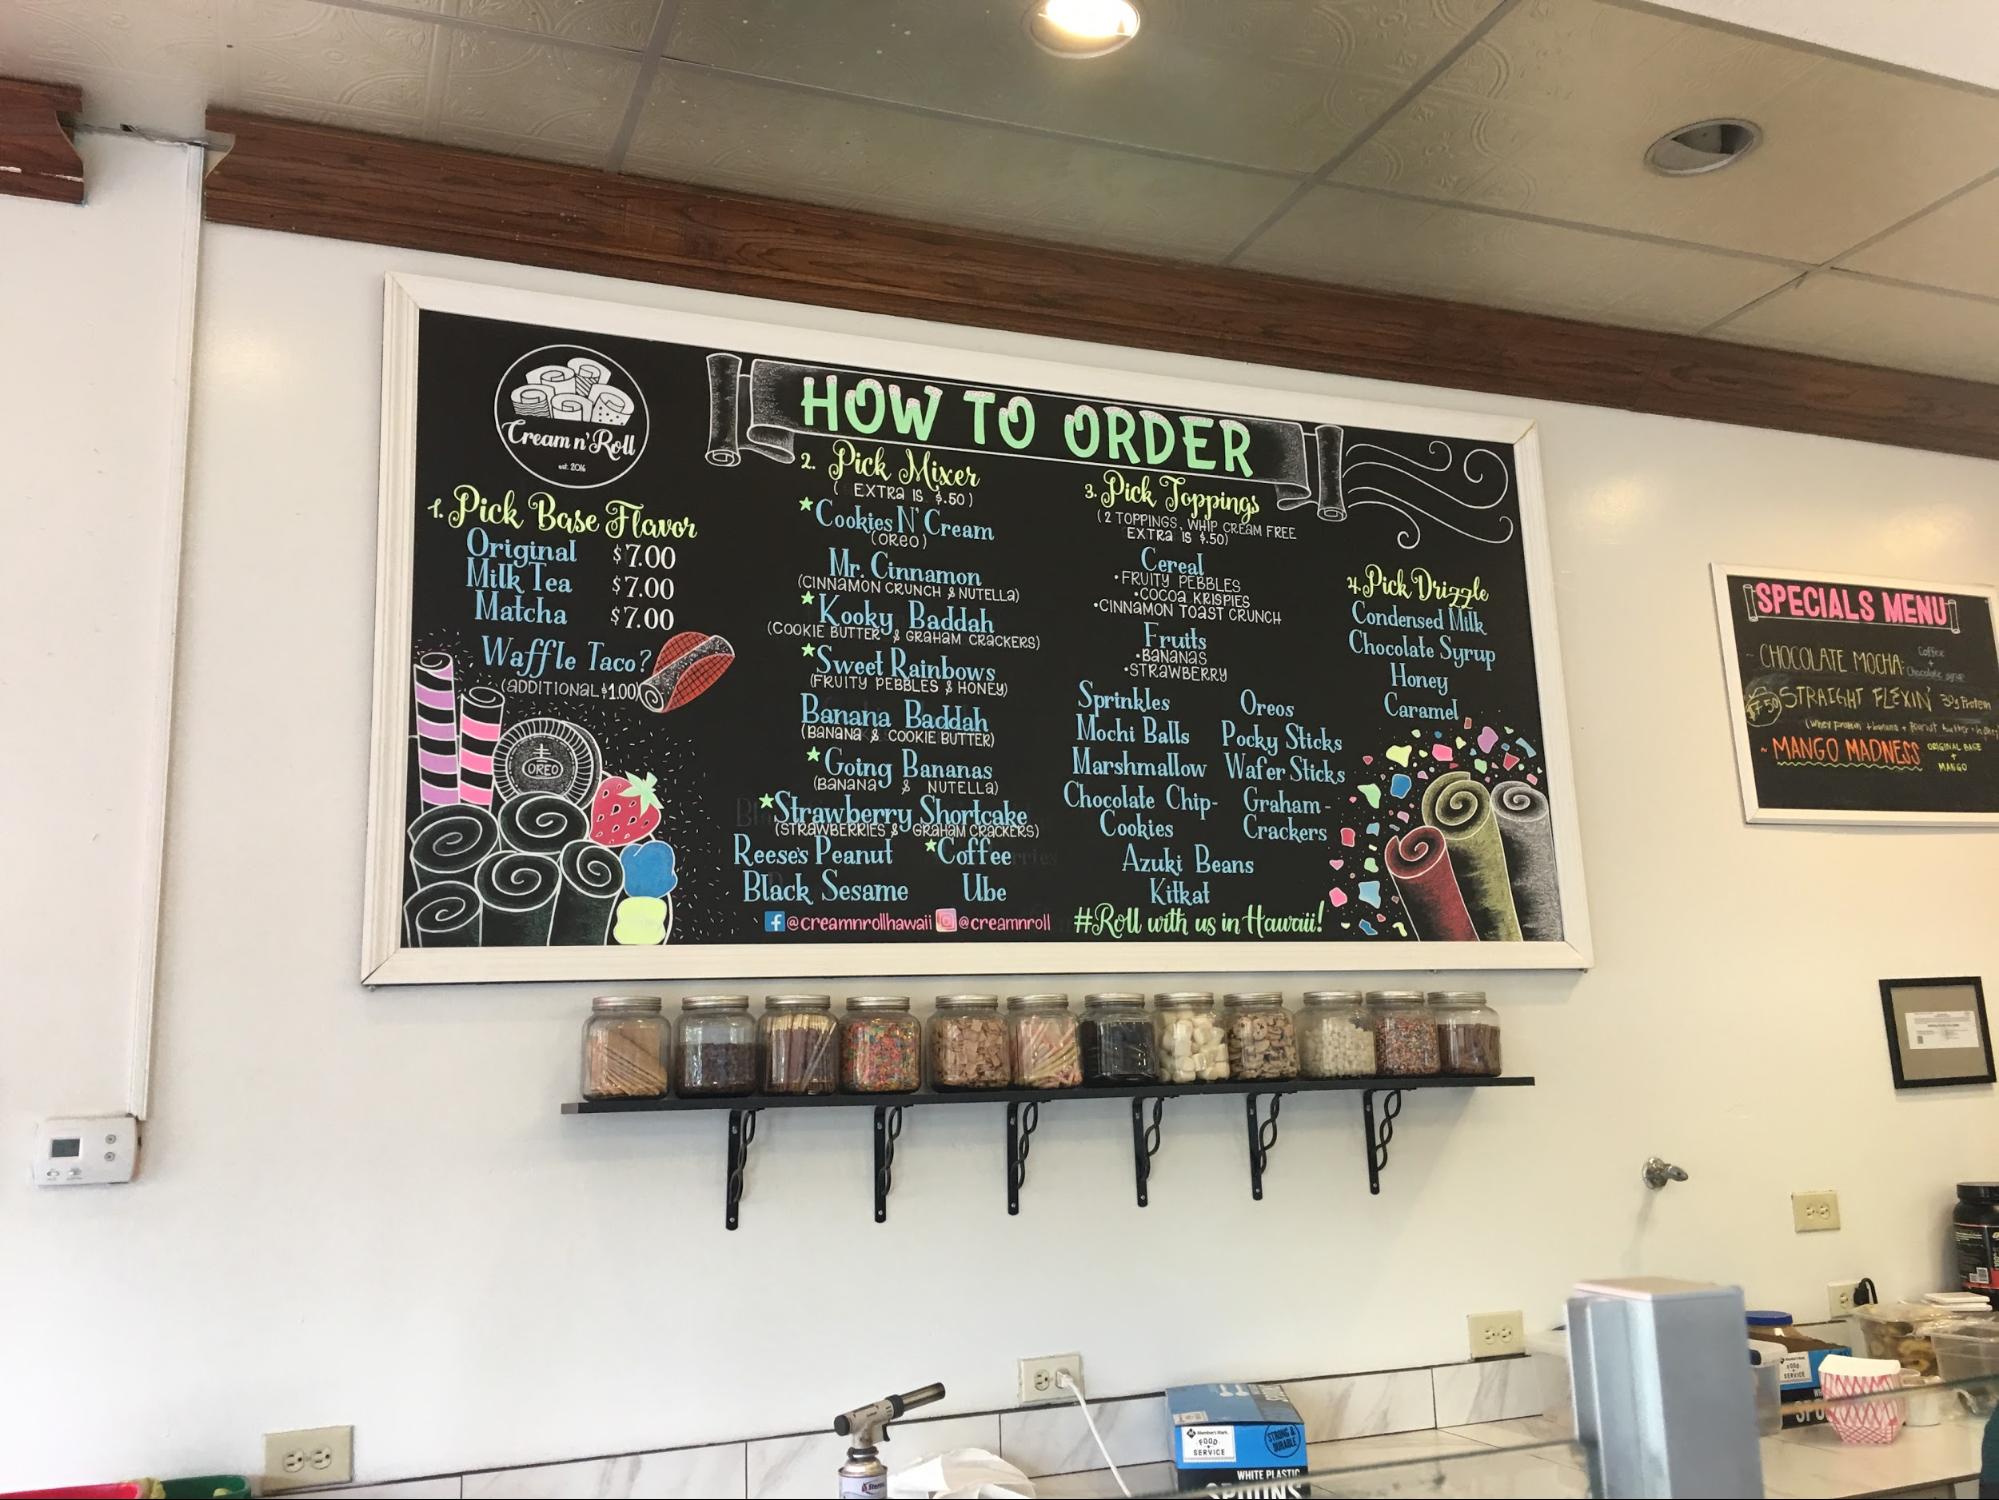 Cream n' Roll
est. 2016
HOW TO ORDER
1. Pick Base Flavor
Original $7.00
Milk Tea $7.00
Matcha $7.00
Waffle Taco?
(ADDITIONAL $1.00)
OREO
2. Pick Mixer
( EXTRA IS $.50 )
Cookies N' Cream
(OREO)
Mr. Cinnamon
(CINNAMON CRUNCH & NUTELLA)
Kooky Baddah
(COOKIE BUTTER & GRAHAM CRACKERS)
Sweet Rainbows
(FRUITY PEBBLES & HONEY)
Banana Baddah
(BANANA & COOKIE BUTTER)
Going Bananas
(BANANA & NUTELLA)
Strawberry Shortcake
(STRAWBERRIES & GRAHAM CRACKERS)
Reese's Peanut Coffee
Black Sesame Ube
@creamnrollhawaii @creamnroll
3. Pick Toppings
(2 TOPPINGS, WHIP CREAM FREE
EXTRA IS $.50)
Cereal
• FRUITY PEBBLES
• COCOA KRISPIES
• CINNAMON TOAST CRUNCH
Fruits
• BANANAS
• STRAWBERRY
Sprinkles Oreos
Mochi Balls Pocky Sticks
Marshmallow Wafer Sticks
Chocolate Chip- Graham-
Cookies Crackers
Azuki Beans
Kitkat
#Roll with us in Hawaii!
4. Pick Drizzle
Condensed Milk
Chocolate Syrup
Honey
Caramel
SPECIALS MENU
~ CHOCOLATE MOCHA: Coffee + Chocolate syrup
$7.50 STRAIGHT FLEXIN' 30g Protein
(Whey protein + banana + Peanut butter + honey)
~ MANGO MADNESS ORIGINAL BASE + MANGO
Member's Mark
FOOD
SERVICE
STRONG & DURABLE
WHITE PLASTIC
SPOONS
FOOD
SERVICE